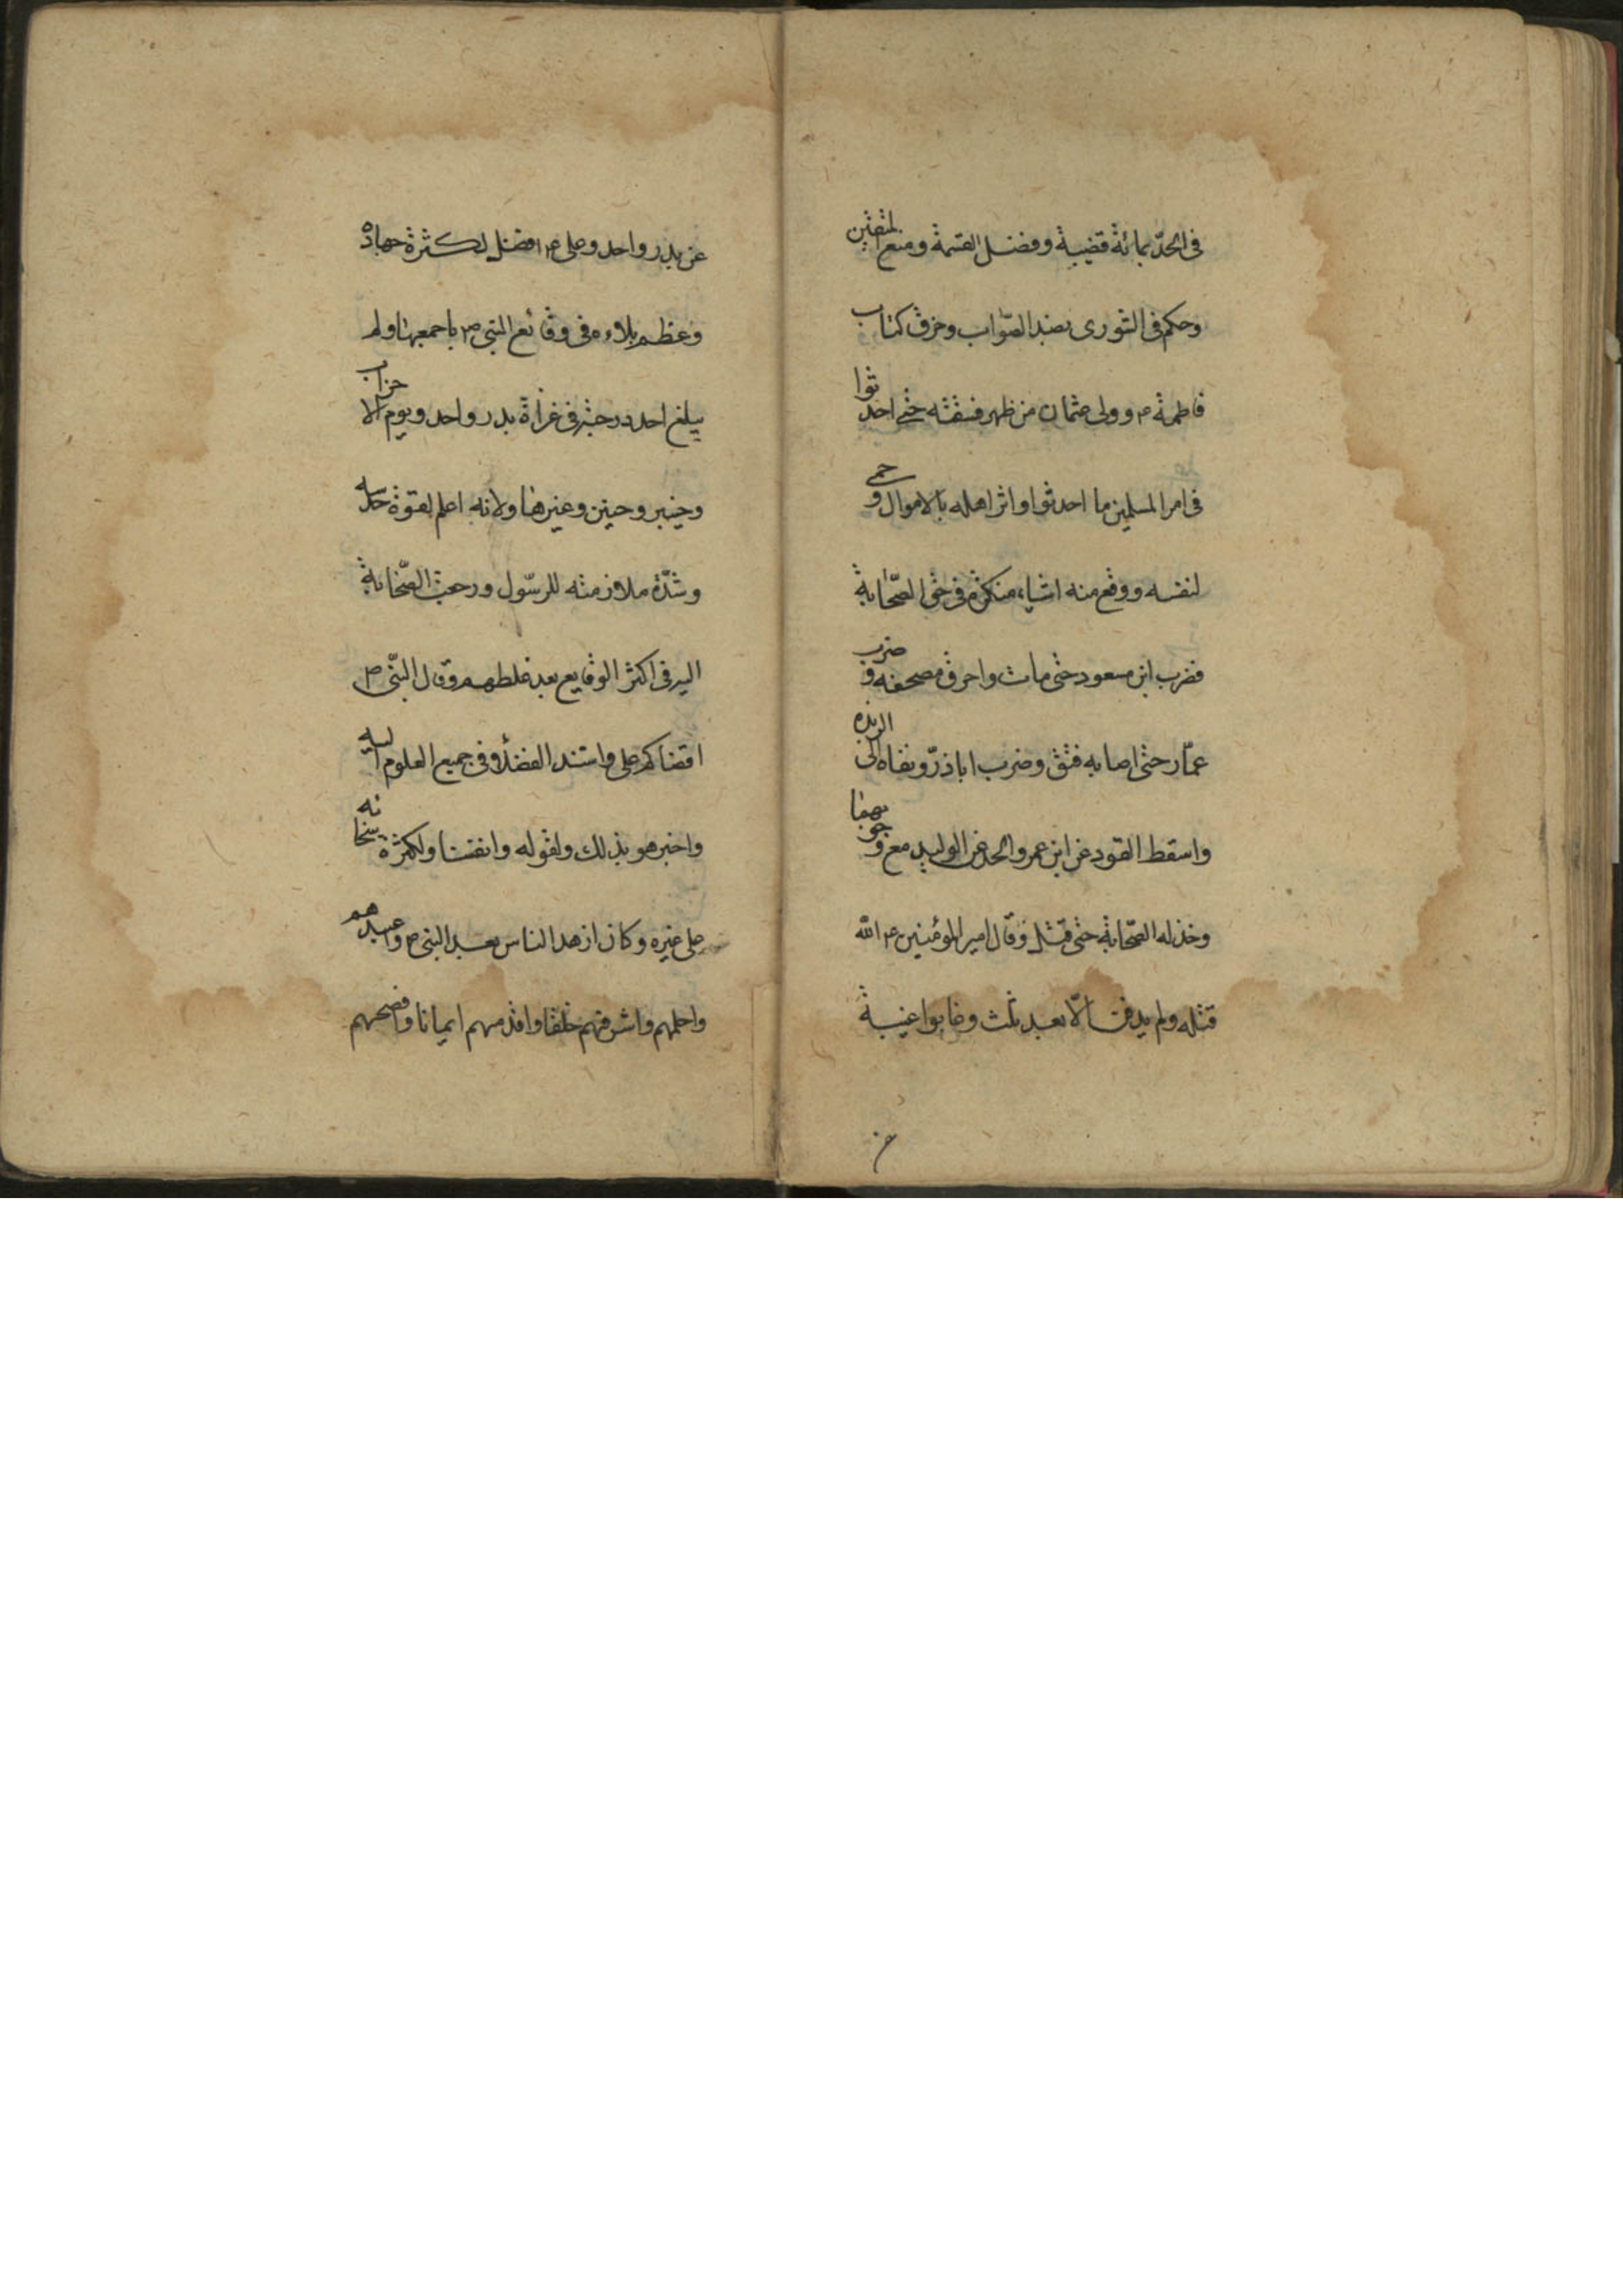 فی الحدّ بمائة قضیة وفضل القسمة ومنع المتعتین
وحکم فی الشوری بضد الصّواب وخرق کتاب
فاطمة ع وولی عثمان من ظهر فسقه حتی احدثوا
فی امر المسلمین ما احدثوا واثر اهله بالاموال وحمی
لنفسه ووقع منه اشیاء منکرة فی حق الصّحابة
فضرب ابن مسعود حتی مات واحرق مصحفه وضرب
عمّار حتی اصابه فتق وضرب اباذرّ ونفاه الی الربذه
واسقط القود عن ابن عمر والحد عن الولید مع وجوبهما
وخذله الصّحابة حتی قتل وقال امیر المؤمنین ع اللّه
قتله ولم یدفن الّا بعد ثلث وعابوا غیبة
عن
عن بدر واحد وعلی ع افضل لکثرة جهاده
وعظم بلاءه فی وقائع النبی ص باجمعها ولم
یبلغ احد درجته فی غزاة بدر واحد ویوم الاحزاب
وخیبر وحنین وغیرها ولانه اعلم لقوة حدسه
وشدّة ملازمته للرسّول ورجعت الصّحابة
الیه فی اکثر الوقایع بعد غلطهم وقال النبّی ص
اقضاکم علی واستند الفضلاء فی جمیع العلوم الیه
واخبر هو بذلک ولقوله وانفسنا ولکثرة سخائه
علی غیره وکان ازهد الناس بعد النبی ص واعبدهم
واحلمهم واشرفهم خلقا واقدمهم ایمانا وافصحهم